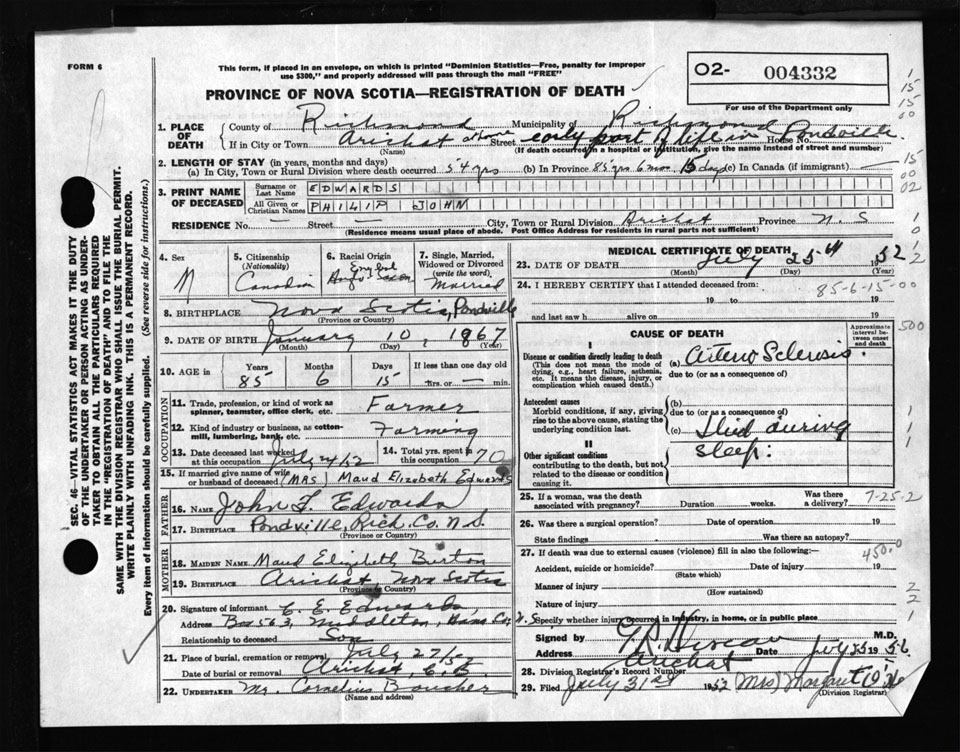 FORM 6
This form, if placed in an envelope, on which is printed "Dominion Statistics—Free, penalty for improper
use $300," and properly addressed will pass through the mail "FREE"
PROVINCE OF NOVA SCOTIA—REGISTRATION OF DEATH
O2- 004332
For use of the Department only
1. PLACE OF DEATH
County of Richmond Municipality of Richmond
If in City or Town Arichat at home Street early part of life in House No. Pondville.
(Name) (If death occurred in a hospital or institution, give the name instead of street and number)
2. LENGTH OF STAY (in years, months and days)
(a) In City, Town or Rural Division where death occurred 54 yrs (b) In Province 85 yrs 6 mos 15 days (c) In Canada (if immigrant) —
3. PRINT NAME OF DECEASED
Surname or Last Name EDWARDS
All Given or Christian Names PHILIP JOHN
RESIDENCE No. — Street — City, Town or Rural Division Arichat Province N. S
(Residence means usual place of abode. Post Office Address for residents in rural parts not sufficient)
4. Sex M
5. Citizenship (Nationality) Canadian
6. Racial Origin
7. Single, Married, Widowed or Divorced (write the word) Married
8. BIRTHPLACE Nova Scotia, Pondville
(Province or Country)
9. DATE OF BIRTH January 10, 1867
(Month) (Day) (Year)
10. AGE in Years 85 Months 6 Days 15 If less than one day old
hrs. or — min.
OCCUPATION
11. Trade, profession, or kind of work as
spinner, teamster, office clerk, etc. Farmer
12. Kind of industry or business, as cotton-
mill, lumbering, bank, etc. Farming
13. Date deceased last worked at this occupation July 24/52
14. Total yrs. spent in this occupation 70
15. If married give name of wife
or husband of deceased (MRS) Maud Elizabeth Edwards
FATHER
16. NAME John F. Edwards
17. BIRTHPLACE Pondville, Rich. Co. N.S.
(Province or Country)
MOTHER
18. MAIDEN NAME Maud Elizabeth Burton
19. BIRTHPLACE Arichat, Nova Scotia
(Province or Country)
20. Signature of informant C. E. Edwards,
Address Box 563, Middleton, Anna Co, N. S.
Relationship to deceased Son
21. Place of burial, cremation or removal July 27/52
Date of burial or removal Arichat, C.B
22. UNDERTAKER Mr. Cornelius Boucher
(Name and address)
MEDICAL CERTIFICATE OF DEATH
23. DATE OF DEATH July 25th 1952
(Month) (Day) (Year)
24. I HEREBY CERTIFY that I attended deceased from:
85-6-15-00
19 to 19
and last saw h alive on 19
CAUSE OF DEATH
Approximate interval between onset and death
I
Disease or condition directly leading to death
(This does not mean the mode of
dying, e.g., heart failure, asthenia,
etc. It means the disease, injury, or
complication which caused death.)
(a) Arterio Sclerosis
due to (or as a consequence of)
Antecedent causes
Morbid conditions, if any, giving
rise to the above cause, stating the
underlying condition last.
(b)
due to (or as a consequence of)
(c) Died during
sleep.
II
Other significant conditions
contributing to the death, but not
related to the disease or condition
causing it.
25. If a woman, was the death
associated with pregnancy? Duration weeks. Was there a delivery?
7-25-2
26. Was there a surgical operation? Date of operation 19
State findings Was there an autopsy?
27. If death was due to external causes (violence) fill in also the following:—
450.0
Accident, suicide or homicide? Date of injury 19
(State which)
Manner of injury
(How sustained)
Nature of injury
Specify whether injury occurred in industry, in home, or in public place
Signed by M.D.
Arichat Date July 25 1952
28. Division Registrar's Record Number
29. Filed July 31st 1952 (Mrs) Margaret
(Division Registrar)
SEC. 46—VITAL STATISTICS ACT MAKES IT THE DUTY
OF THE UNDERTAKER OR PERSON ACTING AS UNDER-
TAKER TO OBTAIN ALL THE PARTICULARS REQUIRED
IN THE "REGISTRATION OF DEATH" AND TO FILE THE
SAME WITH THE DIVISION REGISTRAR WHO SHALL ISSUE THE BURIAL PERMIT.
WRITE PLAINLY WITH UNFADING INK. THIS IS A PERMANENT RECORD.
Every item of information should be carefully supplied. (See reverse side for instructions.)